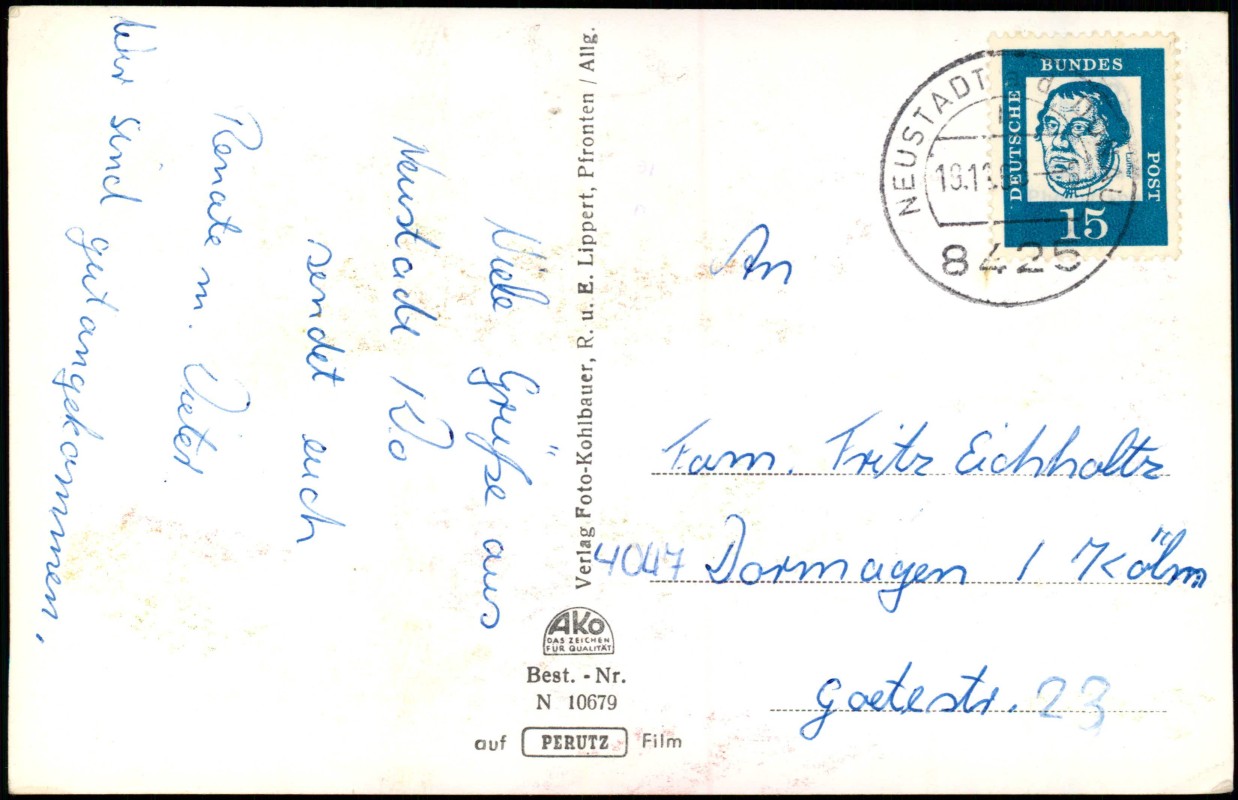 Viele Grüße aus
Neustadt
sendet euch
Renate m.
Wir sind gut angekommen.
Verlag Foto-Kohlbauer, R. u. E. Lippert, Pfronten / Allg.
AKo
DAS ZEICHEN
FÜR QUALITÄT
Best. - Nr.
N 10679
auf PERUTZ Film
NEUSTADT
8425
DEUTSCHE
BUNDES
POST
Luther
15
An
Fam. Fritz Eichholtz
4047 Dormagen / Köln
Goetestr. 23